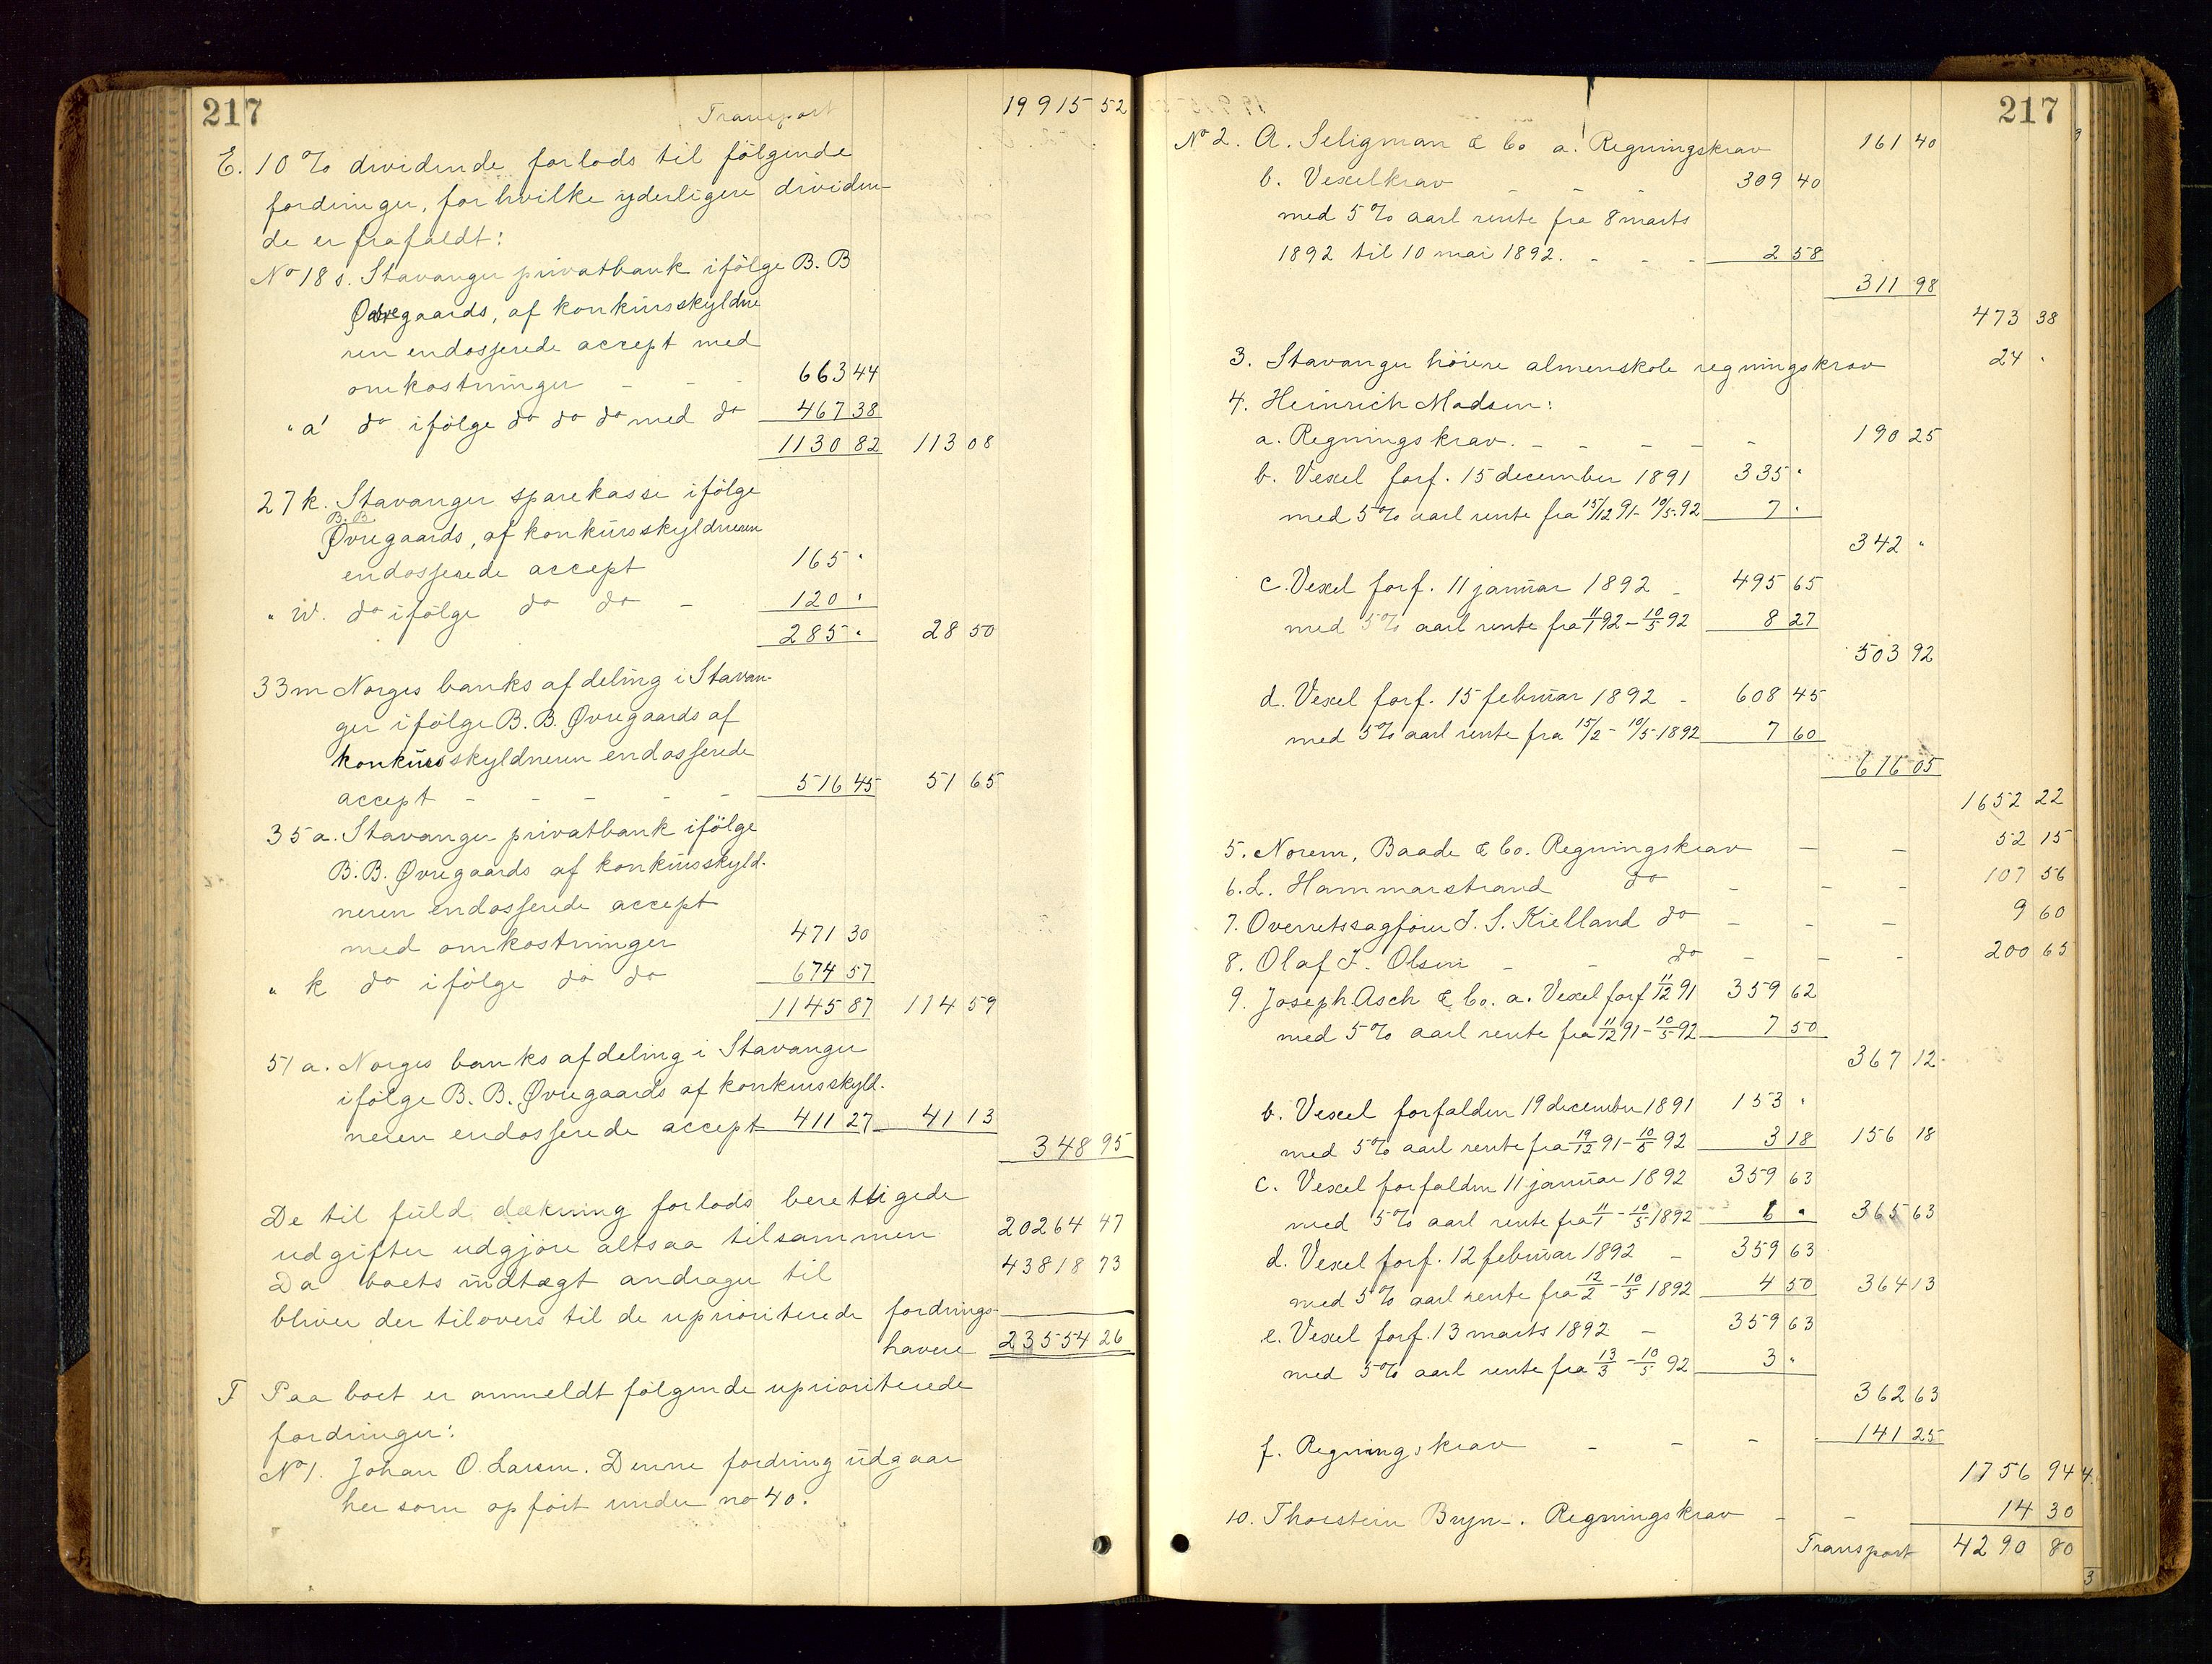 217
Transport 19915 52
E. 10 % dividende forlods til følgende
fordringer, for hvilke yderligere dividen-
de er frafaldt:
No 18 s. Stavanger privatbank ifölge B. B
Øvregaards, af konkursskyldne
ren endosserede accept med
omkostninger - - - 663 44
" a' do ifölge do do do med do 467 38
1130 82 113 08
27 k. Stavanger sparekasse ifölge
B. B.
Øvregaards, af konkursskyldneren
endosserede accept 165 "
" w. do ifölge do do - 120 "
285 " 28 50
33 m Norges banks afdeling i Stavan-
ger ifölge B. B. Øvregaards af
konkursskyldneren endosserede
accept - - - - - 516 45 51 65
35 a. Stavanger privatbank ifölge
B. B. Øvregaards af konkursskyld-
neren endosserede accept
med omkostninger 471 30
" k do ifölge do do 674 57
1145 87 114 59
51 a. Norges banks afdeling i Stavanger
ifölge B. B. Øvregaards af konkursskyld-
neren endosserede accept 411 27 41 13
348 95
De til fuld dækning forlods berettigede
udgifter udgjøre altsaa tilsammen 20264 47
Da boets indtægt andrager til 43818 73
bliver der tilovers til de uprioriterede fordrings-
havere 23554 26
F Paa boet er anmeldt følgende uprioriterede
fordringer:
No 1. Johan O. Larsen. Denne fordring udgaar
her som opført under no 40.
217
No 2. A. Seligman & Co a. Regningskrav 161 40
b. Vexelkrav - - - 309 40
med 5 % aarl rente fra 8 marts
1892 til 10 mai 1892. - - - 2 58
311 98
473 38
3. Stavanger höiere almenskole regningskrav 24 "
4. Heinrich Madsen:
a. Regningskrav. - - - - - 190 25
b. Vexel forf. 15 december 1891 335 "
med 5 % aarl rente fra 15/12 91 - 10/5 92 7 "
342 "
c. Vexel forf. 11 januar 1892 - 495 65
med 5 % aarl rente fra 11/1 92 - 10/5 92 8 27
503 92
d. Vexel forf. 15 februar 1892 - 608 45
med 5 % aarl rente fra 15/2 - 10/5 1892 7 60
616 05
1652 22
5. Norem, Baade & Co. Regningskrav - - 52 15
6. L. Hammarstrand do - - - 107 56
7. Overretssagförer J. S. Kielland do - - - 9 60
8. Olaf J. Olsen - - do - - - 200 65
9. Joseph Asch & Co. a. Vexel forf 11/12 91 359 62
med 5 % aarl rente fra 11/12 91 - 10/5 92 7 50
367 12
b. Vexel forfalden 19 december 1891 153 "
med 5 % aarl rente fra 19/12 91 - 10/5 92 3 18 156 18
c. Vexel forfalden 11 januar 1892 359 63
med 5 % aarl rente fra 11/1 - 10/5 1892 6 " 365 63
d. Vexel forf. 12 februar 1892 - 359 63
med 5 % aarl rente fra 12/2 - 10/5 1892 4 50 364 13
e. Vexel forf. 13 marts 1892 - 359 63
med 5 % aarl rente fra 13/3 - 10/5 92 3 "
362 63
f. Regningskrav - - - 141 25
1756 94
10. Thorstein Bryn. Regningskrav - - 14 30
Transport 4290 80